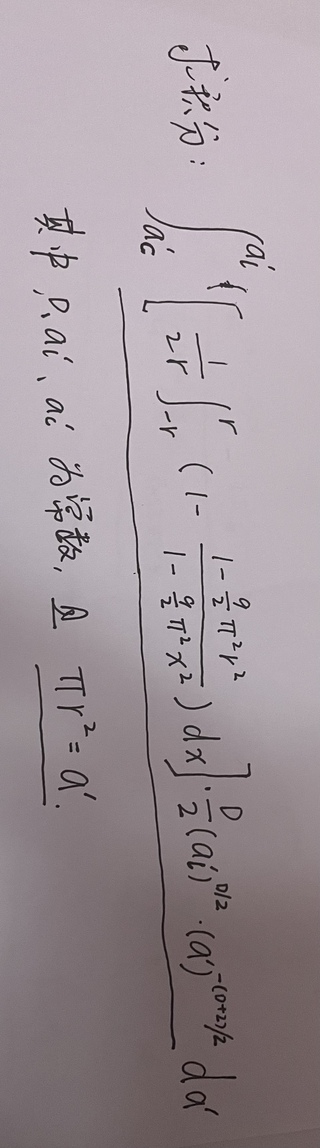 求积分: ∫_{a'_c}^{a'_i} [ \frac{1}{2r} ∫_{-r}^{r} ( 1 - \frac{1-\frac{9}{2}π²r²}{1-\frac{9}{2}π²x²} ) dx ] · \frac{D}{2} (a'_i)^{D/2} · (a')^{-(D+2)/2} da'
其中, D、a'_i、a'_c 为常数, 且 πr²=a'.